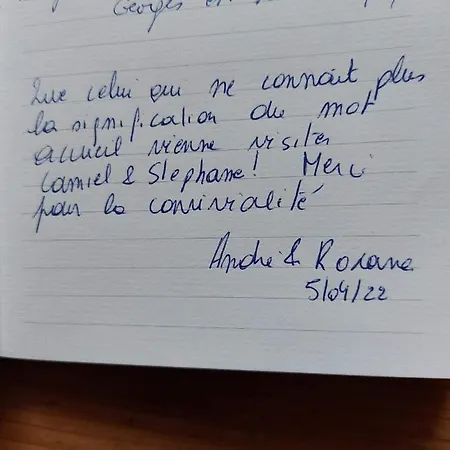 Georges et
Que celui qui ne connait plus
la signification du mot
accueil vienne visiter
Camiel & Stephane! Merci
pour la convivialité
André & Roxane
5/04/22